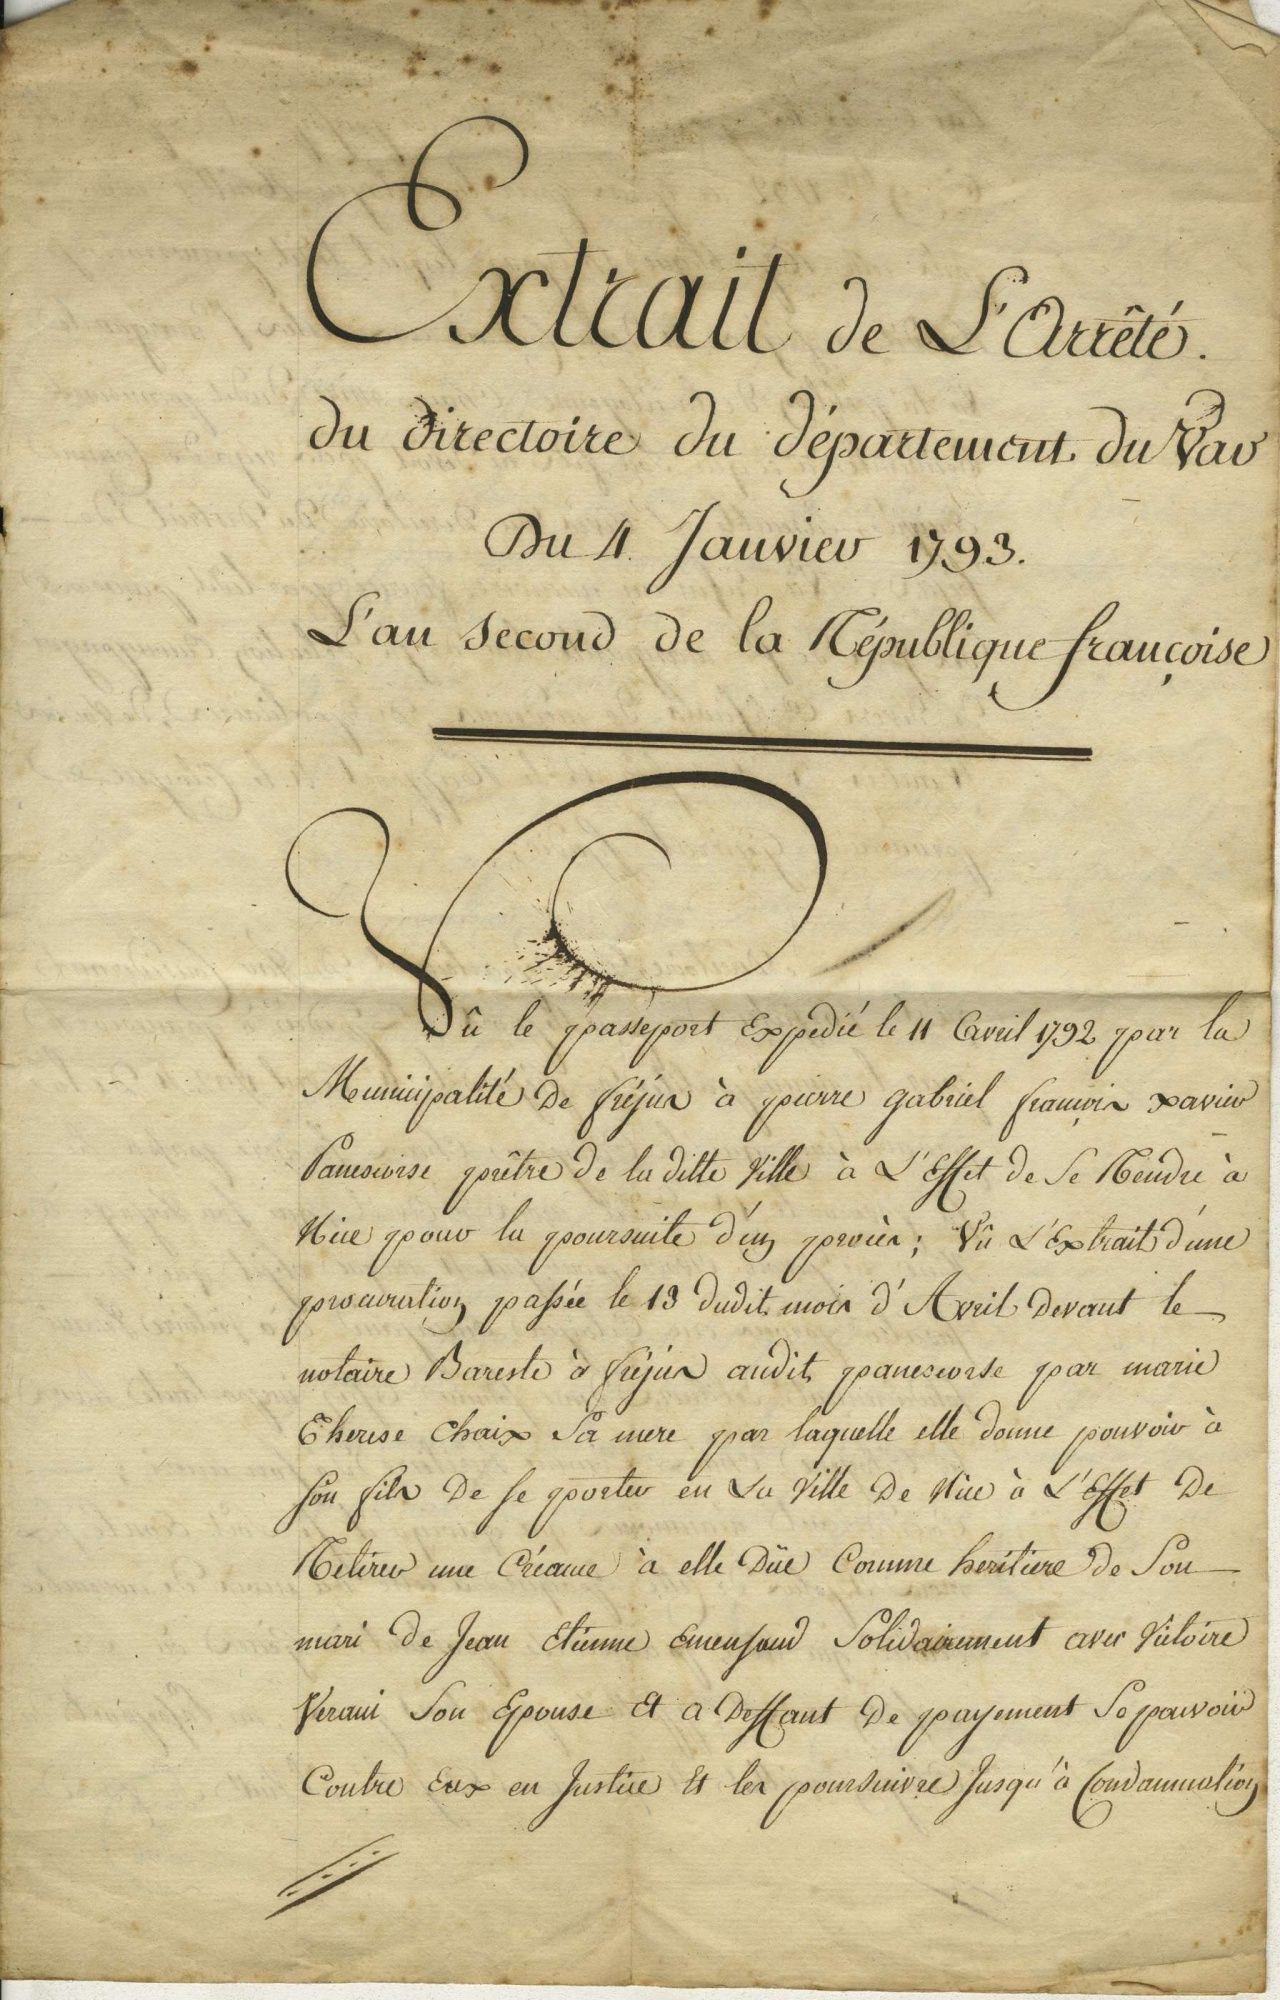 Extrait de L'Arrêté.
du directoire du département du Var
Du 4. Janvier 1793.
L'an second de la République françoise
Vû le passeport Expedié le 11 Avril 1792 par la
Municipalité De fréjus à pierre gabriel françois xavier
Panescorse prêtre de la ditte Ville à L'Effet de Se Rendre à
Nice pour la poursuite d'un procès; Vû L'Extrait d'une
procuration passée le 13 dudit mois d'Avril devant le
notaire Bareste à fréjus audit panescorse par marie
Therese Chaix Sa mere par laquelle elle donne pouvoir à
son fils De se porter en La Ville De Nice à L'Effet De
Retirer une Créance à elle Dûe Comme heritiere de Son
mari de Jean Etienne Solidairement avec Victoire
Verani Son Epouse Et a Deffaut De payement Se pourvoir
Contre Eux en Justice Et les poursuivre Jusqu'à Condamnation